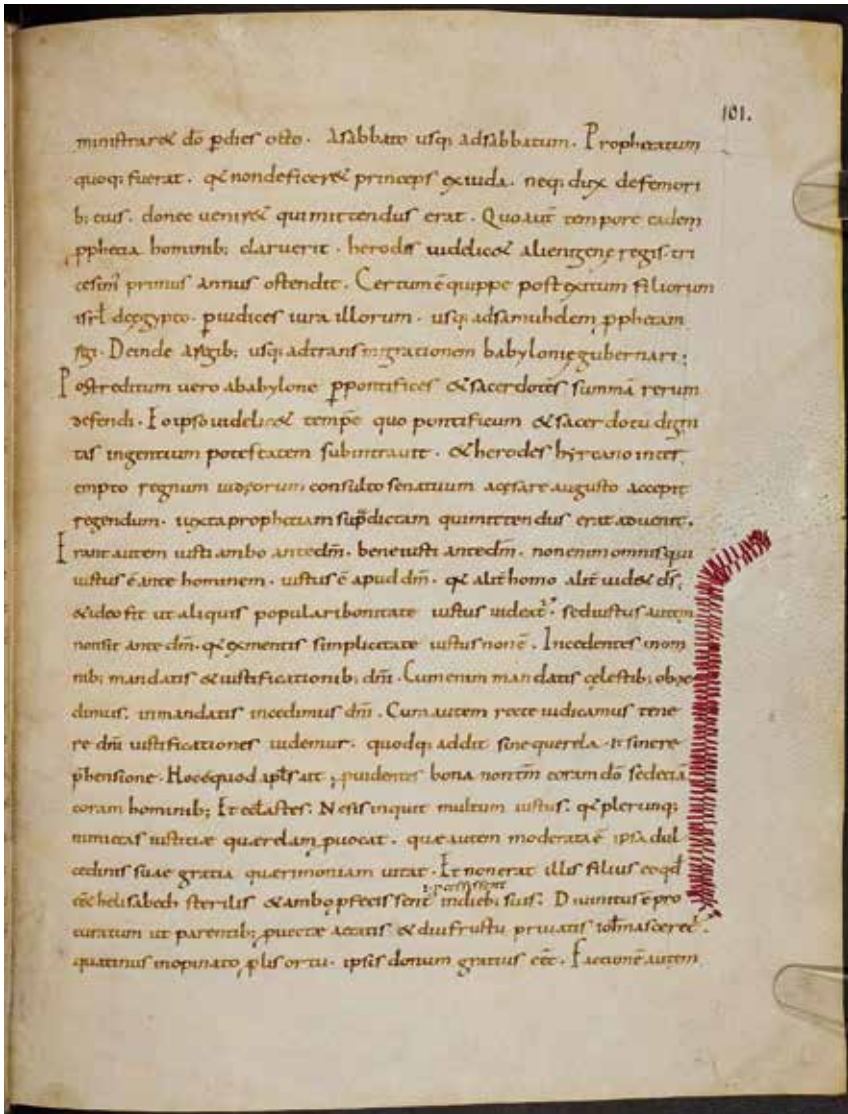 101.
ministraret dō p dies octo. A sabbato usq; ad sabbatum. Prophetatum
quoq; fuerat. qđ non deficeret princeps ex iuda. neq; dux de femori
b; eius. donec veniret qui mittendus erat. Quo aūt tempore eadem
pphetia hominib; claruerit. herodis uidelicet alienigenę regis. tri
cesim; primus annus ostendit. Certum ē quippe post exitum filiorum
isrł de ęgypto. p iudices iura illorum. usq; ad samuhelem pphetam
regi. Deinde a regib; usq; ad transmigrationem babylonię gubernari;
Post reditum uero a babylone p pontifices & sacerdotes summā rerum
defendi. Eo ipso uidelicet tempře quo pontificum & sacerdotū digni
tas ingentium potestatem subintrauit. & herodes hyrcano inter
empto regnum iudęorum consulto senatuum a cęsare augusto accepit
regendum. iuxta prophetiam sup dictam qui mittendus erat aduenit.
Erant autem iusti ambo ante dm̄. bene iusti ante dm̄. non enim omnis qui
iustus ē ante hominem. iustus ē apud dm̄. qđ alit homo alit uidet ds̄.
& ideo fit ut aliquis populari bonitate iustus uideat. sed iustus autem
non sit ante dm̄. qđ ex mentis simplicitate iustus non ē. Incedentes in om
nib; mandatis & iustificationib; dn̄i. Cum enim mandatis cęlestib; obae
dimus. in mandatis incedimus dn̄i. Cum autem recte iudicamus tene
re dn̄i iustificationes uidemur. quodq; addit sine querela. ił sine re
phensione. Hoc ē quod apłs ait; puidentes bona non tm̄ coram dō sed etiā
coram hominib; Et ecclastes. Ne sis inquit multum iustus. qđ plerunq;
nimietas iustitiae querelam puocat. quae autem moderata ē ipsa dul
cedinis suae gratia querimoniam uitat. Et non erat illis filius eo qđ
eēt helisabeth sterilis & ambo pfecissent in dieb; suis. Diuinitus ē pro
ł processissent
curatum ut parentib; puectae aetatis & diu fructu priuatis ioh̄ nasceret.
quatinus inopinato plis ortu. ipsis donum gratius eēt. Factionē autem